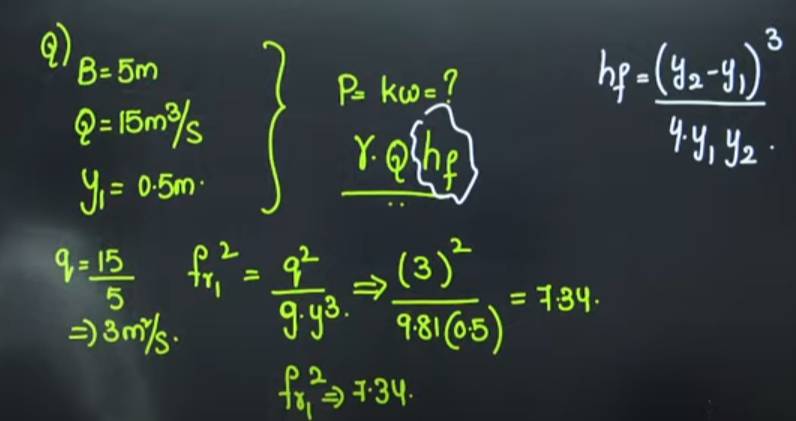 Q)
B = 5m
Q = 15m³/s
y₁ = 0.5m.
P = kw = ?
γ. Q hf
hf = (y₂-y₁)³ / 4.y₁ y₂ .
q = 15/5
⇒ 3m²/s.
fr₁² = q²/g.y³. ⇒ (3)²/9.81(0.5) = 7.34.
fr₁² ⇒ 7.34.